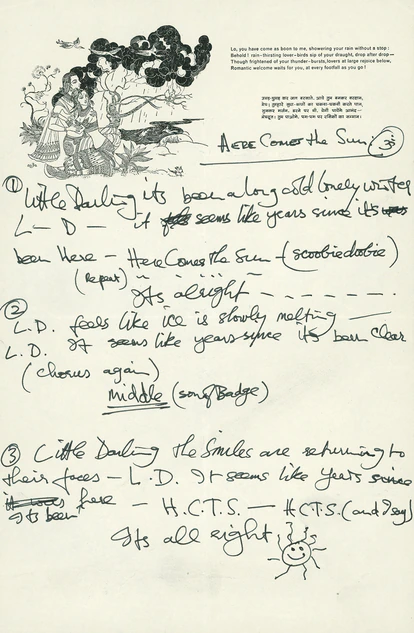 Lo, you have come as boon to me, showering your rain without a stop:
Behold! rain-thirsting lover-birds sip of your draught, drop after drop—
Though frightened of your thunder-bursts, lovers at large rejoice below,
Romantic welcome waits for you, at every footfall as you go!
Here Comes the Sun. ॐ
① Little Darling its been a long cold lonely winter
L — D — it feels seems like years since its was
been Here — Here Comes the Sun — (scoobiedoobie)
(Repeat)
Its alright — — — — — —
② L.D. feels like ice is slowly melting —
L.D. It seems like years since its been clear
(chorus again)
middle (son of Badge)
③ Little Darling the Smiles are returning to
their faces — L.D. It seems like years since
it was here — H.C.T.S. — H.C.T.S. (and I say)
its been
Its all right